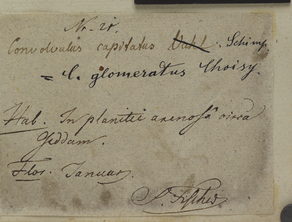 Nr. 21.
Convolvulus capitatus Vahl. Schimp.
= C. glomeratus Choisy.
Hab. In planitie arenosa circa
Geddam.
Flor. Januar.